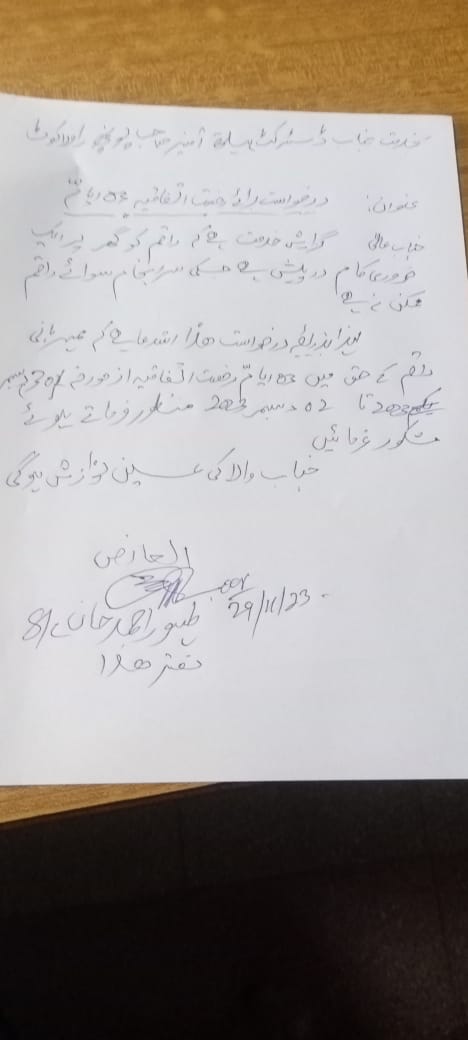 بخدمت جناب ڈسٹرکٹ ہیلتھ آفیسر صاحب پونچھ راولاکوٹ
عنوان: درخواست برائے رخصت اتفاقیہ 03 ایام
جناب عالی گزارش خدمت ہے کہ راقم کو گھر پر ایک
ضروری کام درپیش ہے جسکی سرانجام سوائے راقم
ممکن نہ ہے
لہذا بذریعہ درخواست ھذا استدعا ہے کہ مہربانی
راقم کے حق میں 03 ایام رخصت اتفاقیہ از مورخہ 30 نومبر
2023 تا 02 دسمبر 2023 منظور فرماتے ہوئے
مشکور فرمائیں
جناب والا کی عین نوازش ہوگی
العارض
29/11/23
ظہور احمد خان
دفتر ھذا